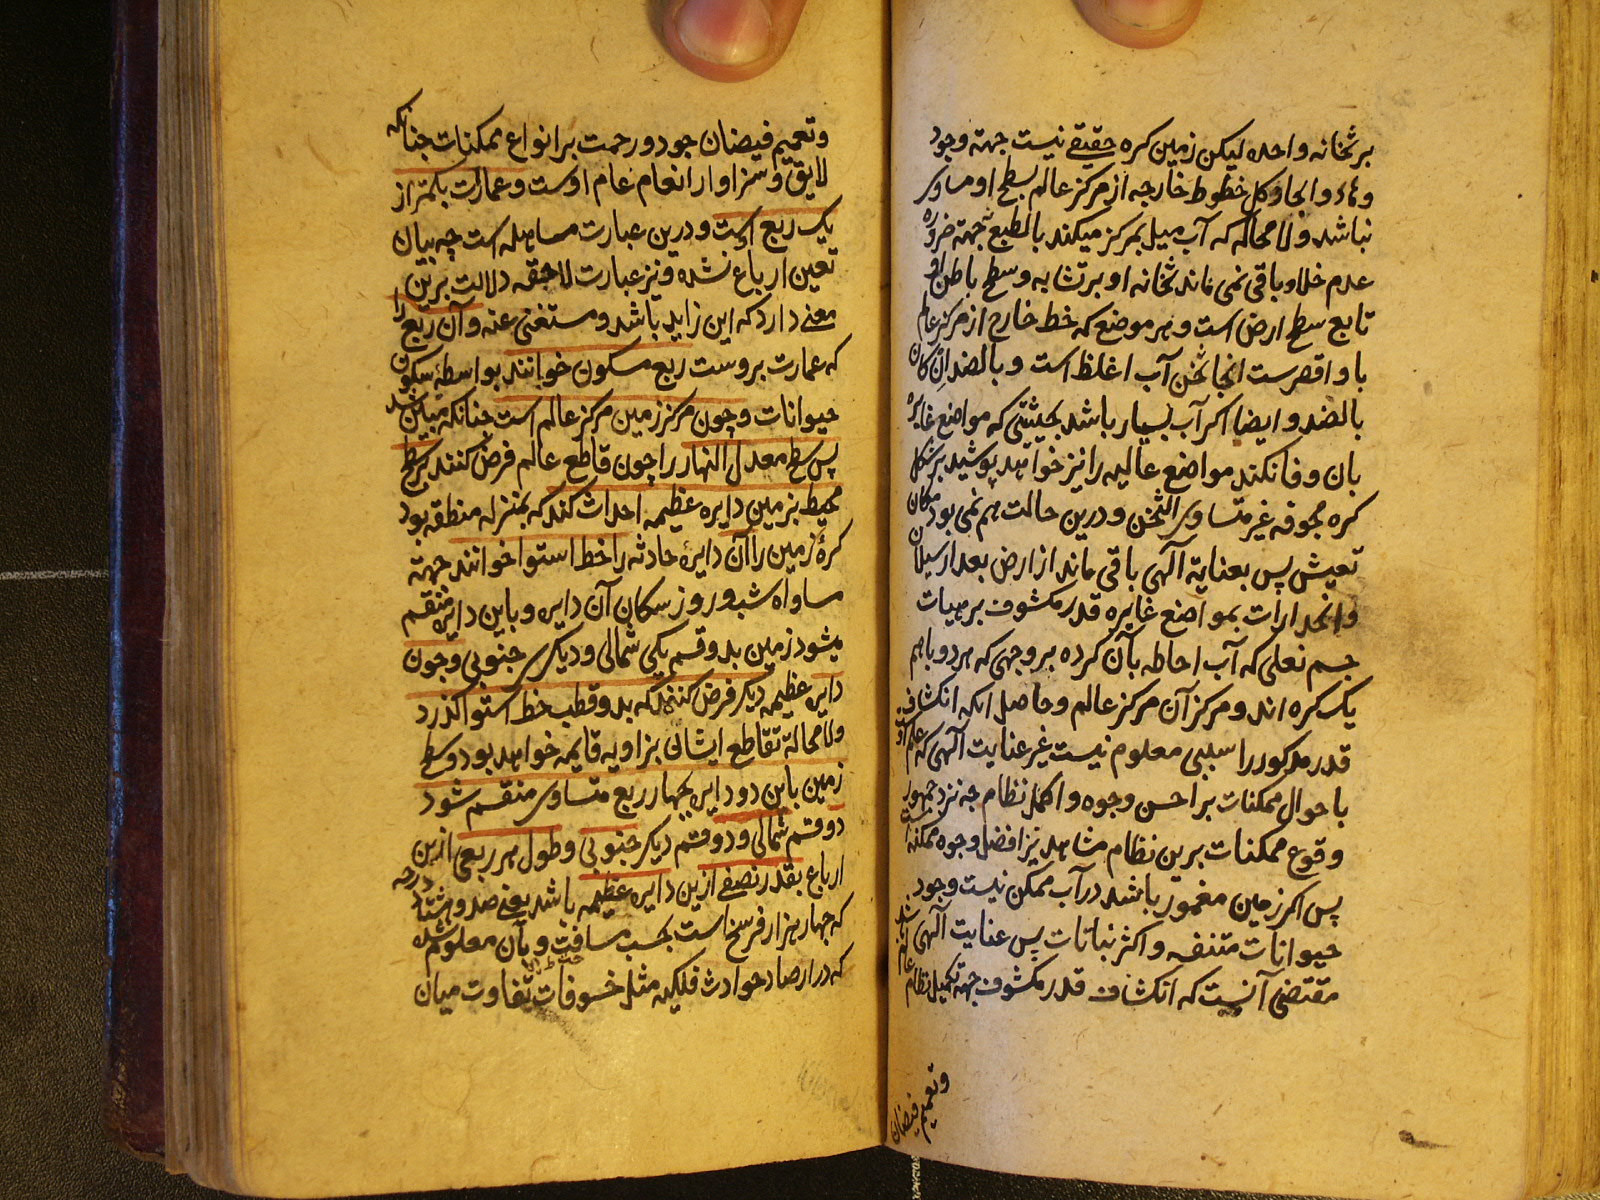 بر ثخانه واحده لیکن زمین کره حقیقے نیست جهة وجود
و وهاد و کل خطوط خارجه از مرکز عالم بسطح او مساوی
نباشد ولا محاله که آب میل بمرکز میکند بالطبع جهة ضروره
عدم خلاء باقی نمی ماند ثخانه او بر تشابه و سطح باطن او
تابع سطح ارض است و هر موضع که خط خارج از مرکز عالم
باو اقصرست انجا ثخن آب اغلظ است و بالضد ان کان
بالضد و ایضا اکر آب بسیار باشد بحیثیتی که مواضع غایره
بان وفا نکند مواضع عالیه را نیز خواهد پوشید بر شکل
کره مجوفه غیر متساوی الثخن و درین حالت هم نمی بود مکان
تعیش پس بعنایة آلهی باقی ماند از ارض بعد از سیلان
و انحدار آب بمواضع غایره قدر مکشوف بر هیات
جسم نعلی که آب احاطه بآن کرده بر وجهی که هر دو با هم
یک کره اند و مرکز آن مرکز عالم و حاصل انکه انکشاف
قدر مذکور را سببی معلوم نیست غیر عنایت آلهی که علم او
باحوال ممکنات بر احسن وجوه و اکمل نظام چه نزد جمهور
وقوع ممکنات برین نظام مشاهد بر افضل وجوه ممکنه است
پس اکر زمین مغمور باشد در آب ممکن نیست وجود
حیوانات متنفسه و اکثر نباتات پس عنایت آلهی
مقتضی آنست که انکشاف قدر مکشوف جهة تکمیل نظام عالم
و تعمیم فیضان
و تعمیم فیضان جود و رحمت بر انواع ممکنات چنانکه
لایق و سزاوار انعام عام اوست و عمارت بکمتر از
یک ربع است و درین عبارت مساهله است چه بیان
تعین ارباع نشده و نیز عبارت لاحقه دلالت برین
معنے دارد که این زاید باشد و مستغنی عنه و آن ربع را
که عمارت بروست ربع مسکون خوانند بواسطهٔ سکون
حیوانات و چون مرکز زمین مرکز عالم است چنانکه مبین شد
پس سطح معدل النهار را چون قاطع عالم فرض کنند بر سطح
محیط بزمین دایره عظیمه احداث کند که بمنزله منطقه بود
کرهٔ زمین را آن دایرهٔ حادثه را خط استوا خوانند جهة
مساواه شب و روز سکان آن دایره و باین دایره منقسم
میشود زمین بدو قسم یکی شمالی و دیکری جنوبی و چون
دایره عظیمه دیکر فرض کنند که بدو قطب خط استوا کذرد
ولا محالة تقاطع ایشان بزاویه قایمه خواهد بود و سطح
زمین باین دو دایره بچهار ربع متساوی منقسم شود
دو قسم شمالی و دو قسم دیکر جنوبی و طول هر ربعی ازین
ارباع بقدر نصفے ازین دایره عظیمه باشد یعنے صد و هشتاد درجه
که چهار هزار فرسخ است بحسب مسافت و بآن معلوم شده
که در ارصاد حوادث فلکیه مثل خسوفات تفاوت میان